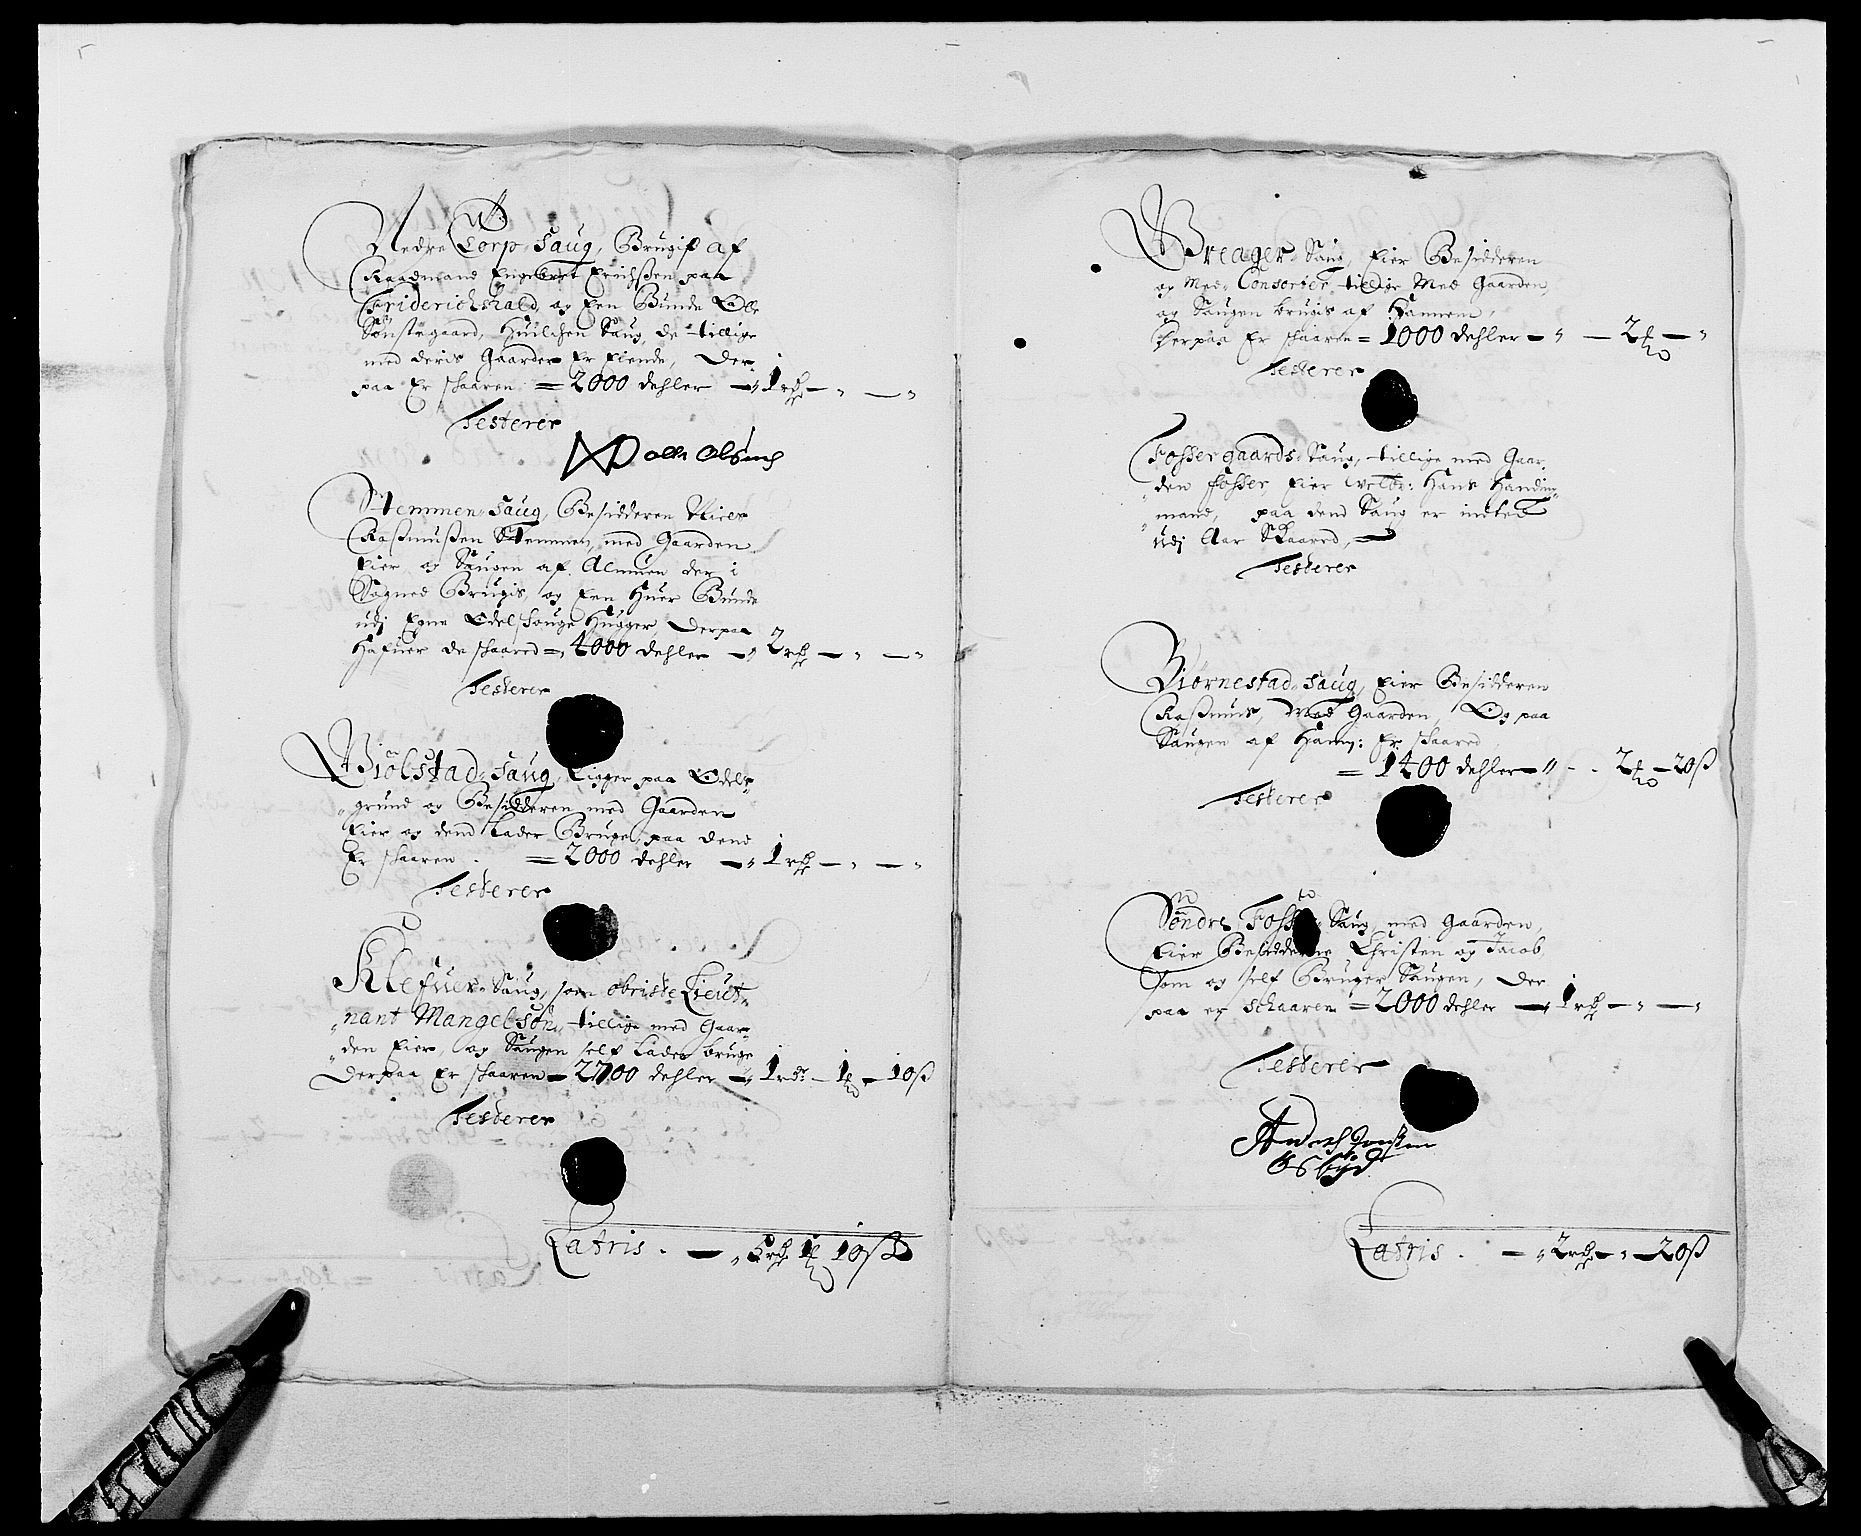 Nedre Torp Saug, Brugis af
Raadmand Engebret Erichssen paa
Friderichshald, og Een Bunde Olle
Sønstegaard, Huilchen Saug, de tillige
med deris Gaarder Er Eiende, Der
paa Er schaaren = 2000 dehler — 1 rd — " — "
Testerer
Olle Olsens
Stemmen Saug, Besidderen Niels
Rassmussen Stemmen, med Gaarden
Eier og Saugen af Almuen der i
Sognet Brugis, og Een Huer Bunde
udj Egne Odelschouge Hugger, Derpaa
Hafuer de schaared = 4000 dehler — 2 rd — " — "
Testerer
Miölstad Saug, Ligger paa Odels
grund og Besidderen med Gaarden
Eier og dend Lader Bruge, paa dend
Er schaaren = 2000 dehler — 1 rd — " — "
Testerer
Klefuer Saug, som obriste Lieut-
nant Mangelsön, tillige med Gaar-
den Eier, og Saugen self Lader bruge
Derpaa Er schaaren = 2700 dehler — 1 rdr — 1 — 10 ß
Testerer
Latris . — 6 rd 1 10 ß
Breager Saug, Eier Besidderen
og Med Consorter, tillige Med Gaarden,
og Saugen brugis af Hannem,
Derpaa Er schaaren = 1000 dehler — " — 2 — "
Testerer
Fossergaards Saug, tillige med Gaar-
den Fosser, Eier Welb: Hans
mand, paa dend Saug er indted
udj Aar Skaared,
Testerer
Biörnestad Saug, Eier Besidderen
Rassmus, Med Gaarden, Og paa
Saugen af Hannem: Er schaared
= 1400 dehler — " — 2 — 20 ß
Testerer
Söndre Fosser Saug, med Gaarden,
Eier Besidderne Christen og Jacob,
som og self Bruger Saugen, Der
paa er schaaren = 2000 dehler — 1 rd — " — "
Testerer
Anders Jenssen
Osbÿd
Latris . — 2 rd — " — 20 ß